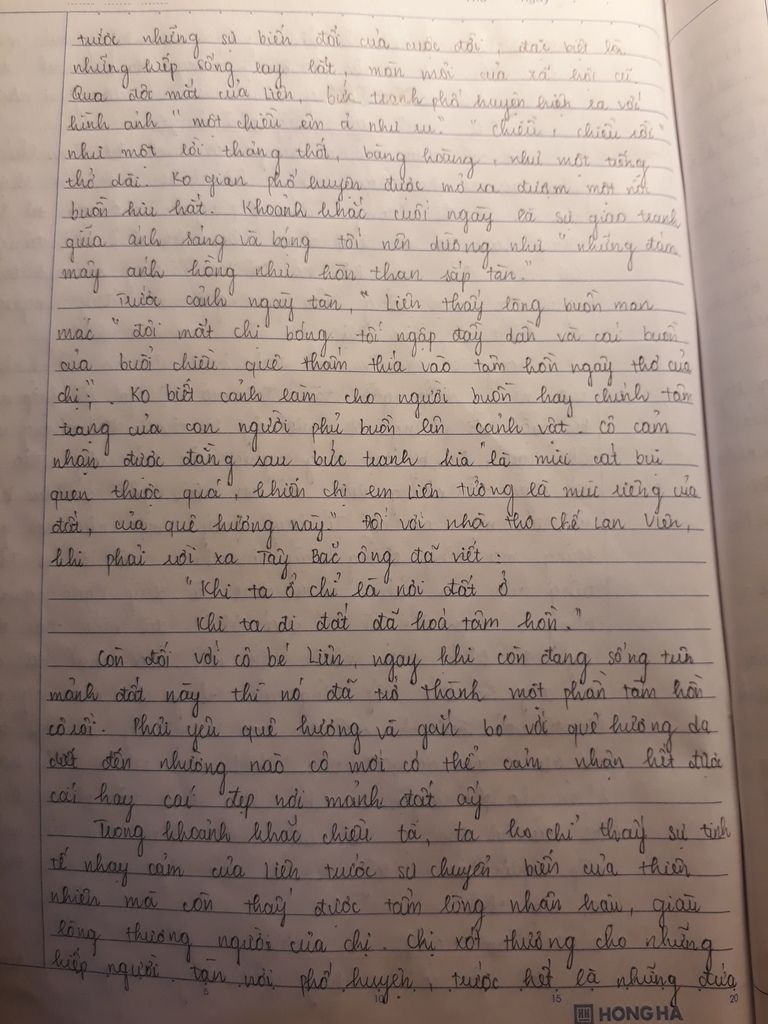 trước những sự biến đổi của cuộc đời, đặc biệt là
những kiếp sống lay lắt, mòn mỏi của xã hội cũ.
Qua đôi mắt của Liên, bức tranh phố huyện hiện ra với
hình ảnh " một chiều êm ả như ru" " chiều, chiều rồi"
như một lời thảng thốt, bâng hoàng, như một tiếng
thở dài. Ko gian phố huyện được mở ra đượm một nỗi
buồn hiu hắt. Khoảnh khắc cuối ngày là sự giao tranh
giữa ánh sáng và bóng tối nên dường như " những đám
mây ánh hồng như hòn than sắp tàn."
Trước cảnh ngày tàn, " Liên thấy lòng buồn man
mác " đôi mắt chị bóng tối ngập đầy dần và cái buồn
của buổi chiều quê thấm thía vào tâm hồn ngây thơ của
chị". Ko biết cảnh làm cho người buồn hay chính tâm
trạng của con người phủ buồn lên cảnh vật. Cô cảm
nhận được đằng sau bức tranh kia " là mùi cát bụi
quen thuộc quá, khiến chị em Liên tưởng là mùi riêng của
đất, của quê hương này." Đối với nhà thơ Chế Lan Viên,
khi phải rời xa Tây Bắc ông đã viết :
" Khi ta ở chỉ là nơi đất ở
Khi ta đi đất đã hoá tâm hồn."
Còn đối với cô bé Liên, ngay khi còn đang sống trên
mảnh đất này thì nó đã trở thành một phần tâm hồn
cô rồi. Phải yêu quê hương và gắn bó với quê hương da
diết đến nhường nào cô mới có thể cảm nhận hết được
cái hay cái đẹp nơi mảnh đất ấy
Trong khoảnh khắc chiều tà, ta ko chỉ thấy sự tinh
tế nhạy cảm của Liên trước sự chuyển biến của thiên
nhiên mà còn thấy được tấm lòng nhân hậu, giàu
lòng thương người của chị. Chị xót thương cho những
kiếp người tàn nơi phố huyện, trước hết là những đứa
5 10 15 20
HH HONG HA